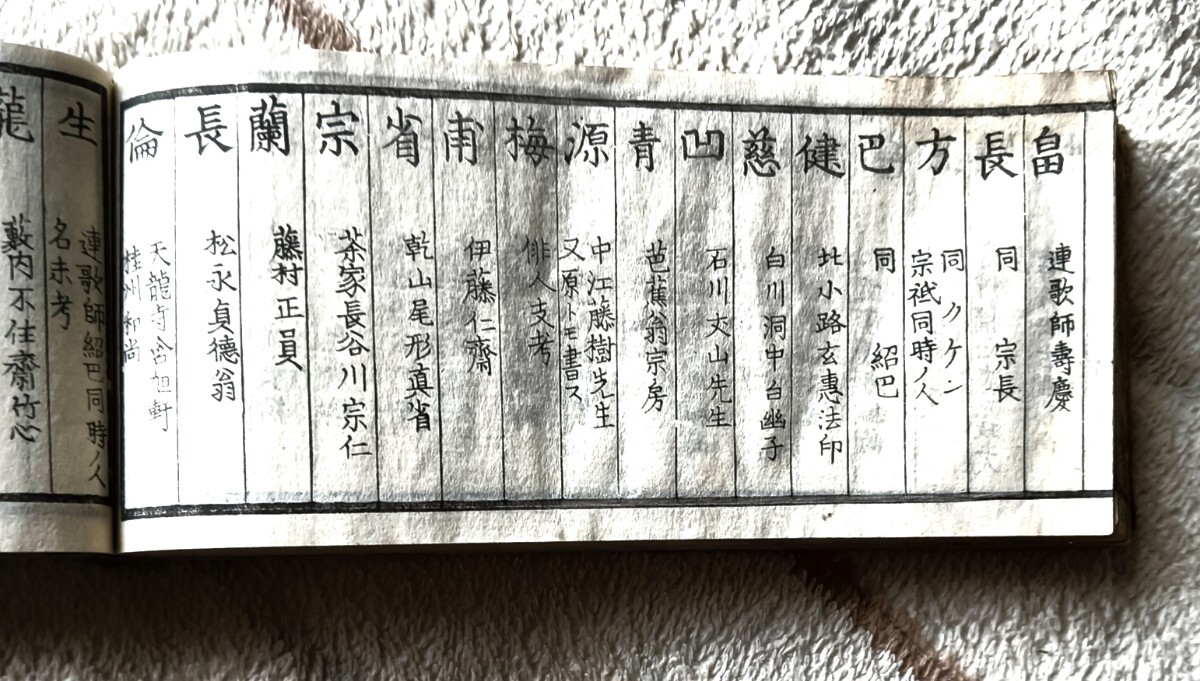 畠 連歌師壽慶
長 同 宗長
方 同 ノケン
宗祗同時ノ人
巴 同 紹巴
健 北小路玄惠法印
慈 白川洞中台幽子
凹 石川丈山先生
青 芭蕉翁宗房
源 中江藤樹先生
又原トモ書ス
梅 俳人支考
甫 伊藤仁齋
省 乾山尾形真省
宗 茶家長谷川宗仁
蘭 藤村正員
長 松永貞德翁
倫 天龍寺 妲軒
桂州和尚
生 連歌師紹巴同時ノ人
名未考
龍 藪内不住齋竹心